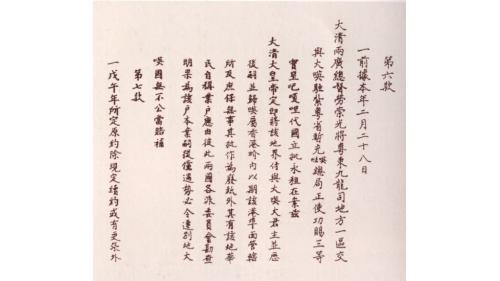 第六款
一前據本年二月二十八日
大清兩廣總督勞崇光將粵東九龍司地方一區交
與大𠸄駐紮粵省暫充𠸄總局正使功賜三等
寶星吧嗄哩代國立批永租在案茲
大清大皇帝定即將該地界付與大𠸄大君主並歷
後嗣並歸𠸄屬香港界內以期該港埠面管轄
所及庶保無事其批作為廢紙外其有該地華
民自稱業戶應由彼此兩國各派委員會勘查
明果為該戶本業嗣後倘遇勢必令遷別地大
𠸄國無不公當賠補
第七款
一戊午年所定原約除現定續約或有更張外